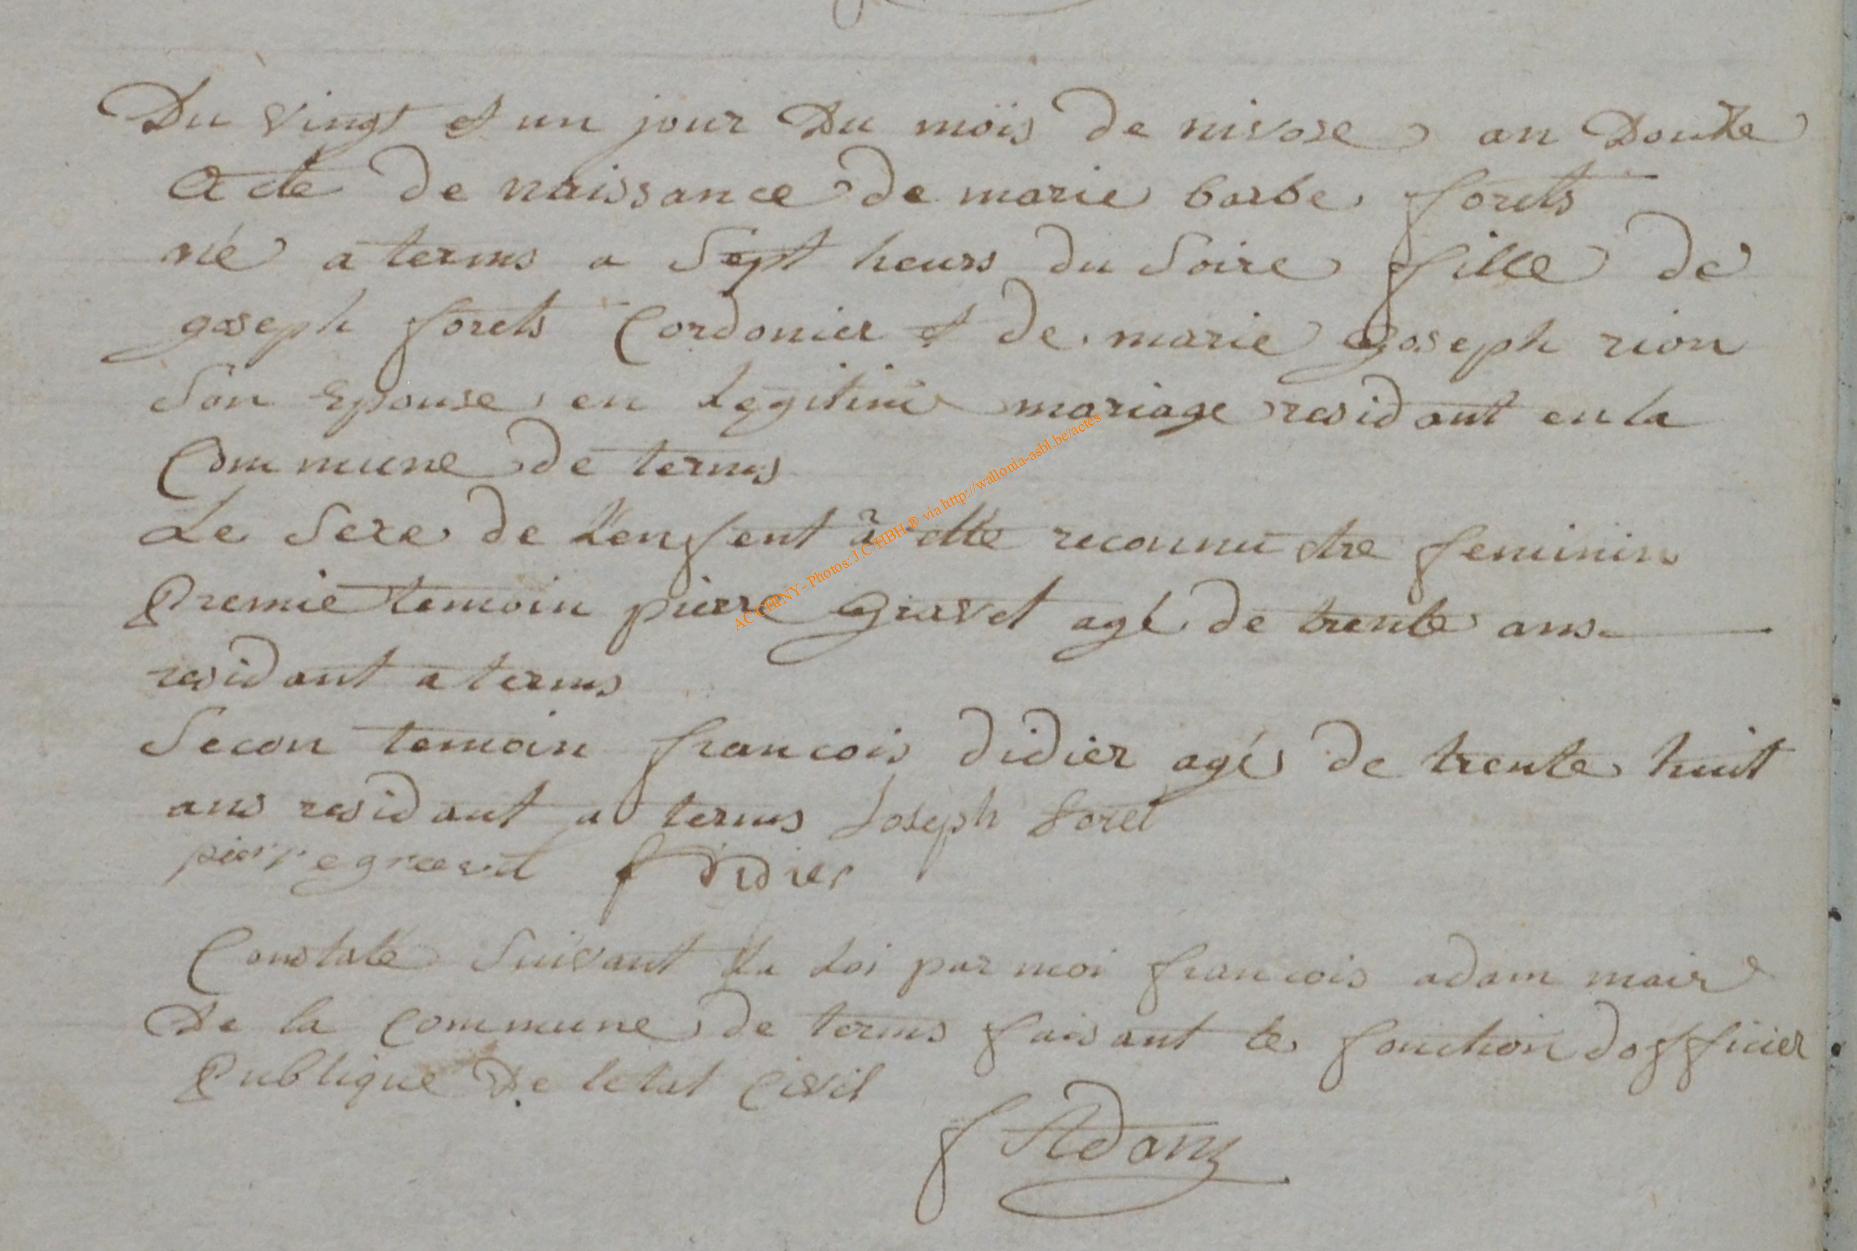 Du vingt et un jour Du mois de nivose an Douze
Acte de naissance de marie barbe forets
né a terms a Sept heurs du Soire fille de
goseph forets Cordonier et de marie goseph rion
Son Epouse en Legitime mariage residant en la
Commune de terms
Le Sexe de Lenfent à etté reconnu etre feminin
Premie temoin pierre gravet agé de trente ans
residant a terms
Secon temoin francois didier agés de trente huit
ans residant a terms Joseph Foret
pierre gravet f Didier
Constate Suivant La Loi par moi francois adam maire
De la Commune de terms faisant les fonction dofficier
Publique De letat Civil
f Adam
AC CHINY - Photos: J.C HBH ® via http://wallonia-asbl.be/actes